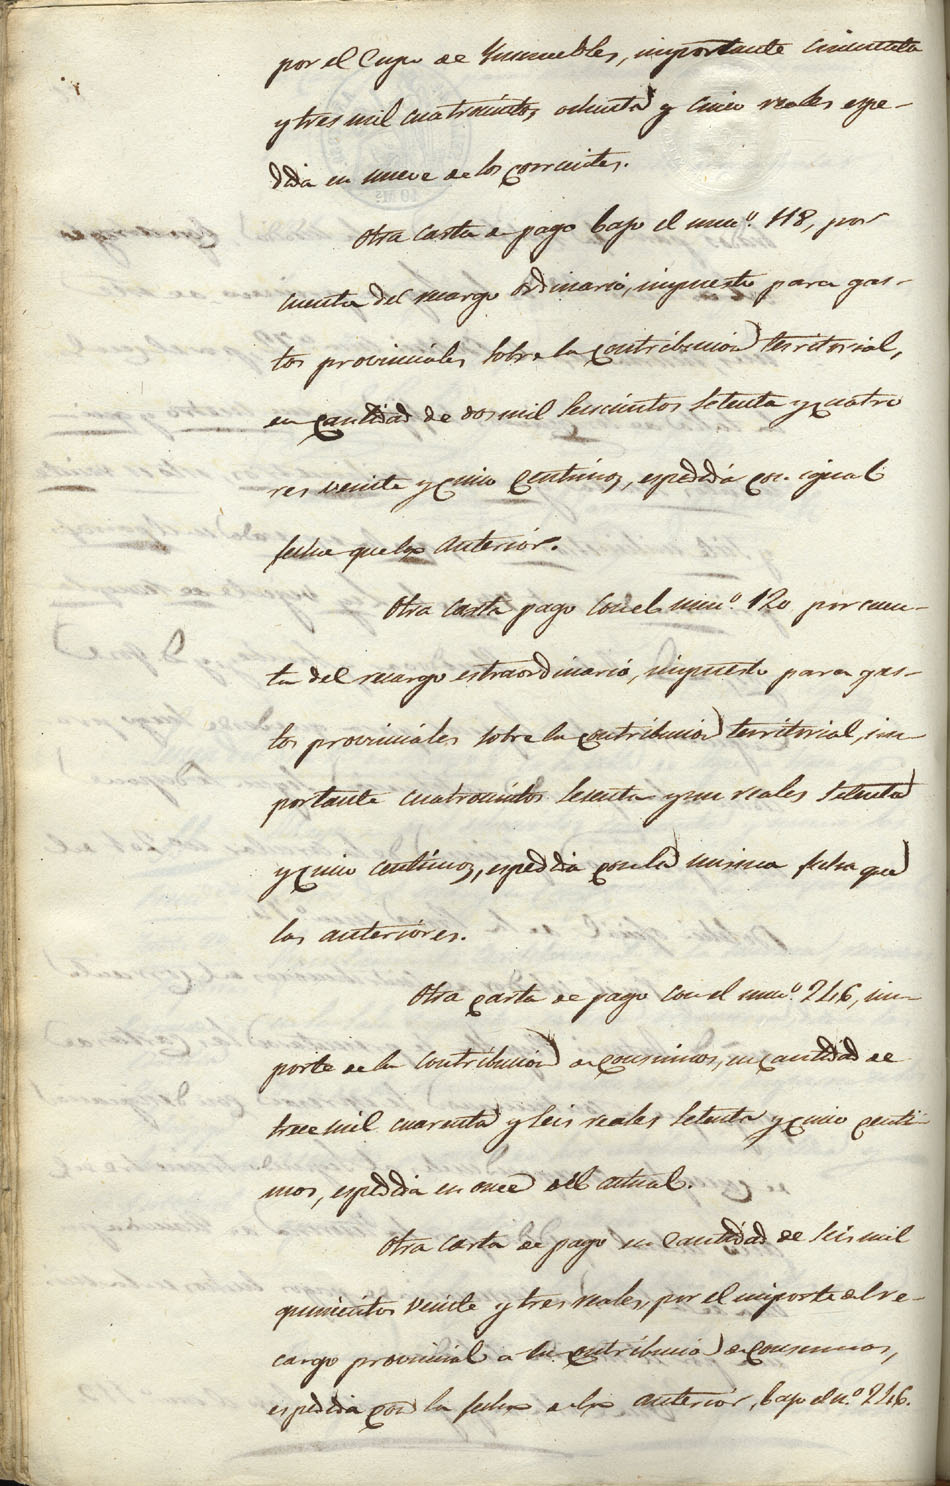 por el Cupo de Ynmuebles, importante cincuenta
y tres mil cuatrocientos ochenta y cinco reales espe-
dida en nueve de los corrientes.
Otra carta de pago bajo el num.º 118, por
cuenta del recargo ordinario, impuesto para gas-
tos provinciales sobre la contribucion territorial,
en cantidad de dos mil seiscientos setenta y cuatro
res veinte y cinco centimos, espedida con igual
fecha que la anterior.
Otra carta pago con el num.º 120 por cuen-
ta del recargo estraordinario, impuesto para gas-
tos provinciales sobre la contribucion territorial, im-
portante cuatrocientos sesenta y un reales setenta
y cinco centimos, espedida con la misma fecha que
las anteriores.
Otra carta de pago con el num.º 246, im-
porte de la contribucion de consumos, en cantidad de
trece mil cuarenta y seis reales setenta y cinco centi-
mos, espedida en once del actual.
Otra carta de pago en cantidad de seis mil
quinientos veinte y tres reales, por el importe del re-
cargo provincial a la contribucion de consumos,
espedida con la fecha de la anterior, bajo el n.º 246.